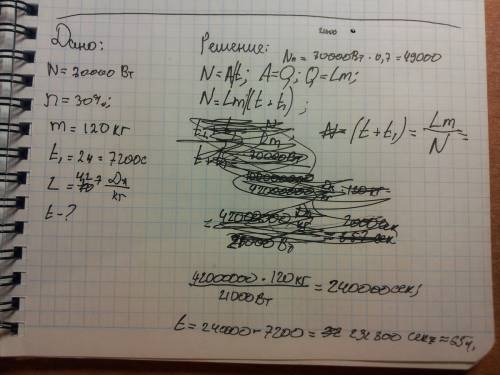 Дано:
N = 70000 Вт
η = 30%;
m = 120 кг
t₁ = 2ч = 7200с
t - ?
Решение:
Nп = 70000Вт · 0,7 = 49000
N = A/t; A = Q; Q = Lm;
N = Lm/(t + t₁) ;
(t + t₁) = Lm/N =
42000000 · 120кг / 21000Вт = 240000сек;
t = 240000 - 7200 = 232800 сек ≈ 65ч,